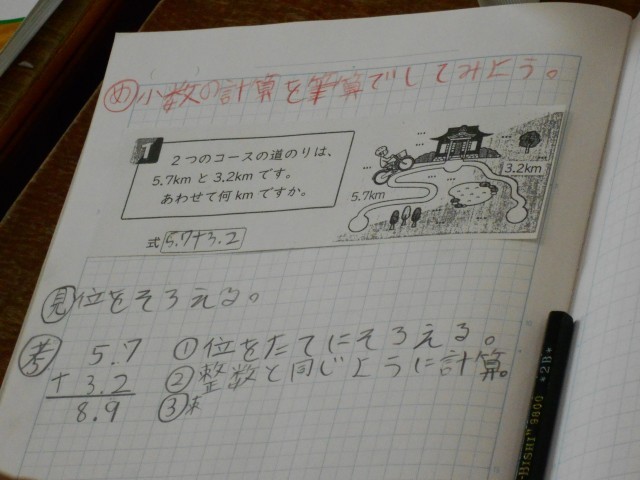 め 小数の計算を筆算でしてみよう。
1
2つのコースの道のりは、
5.7kmと3.2kmです。
あわせて何kmですか。
5.7km
3.2km
式 5.7+3.2
見 位をそろえる。
考 5.7
+ 3.2
8.9
① 位をたてにそろえる。
② 整数と同じように計算。
③
BISHI 9800 ★2B★